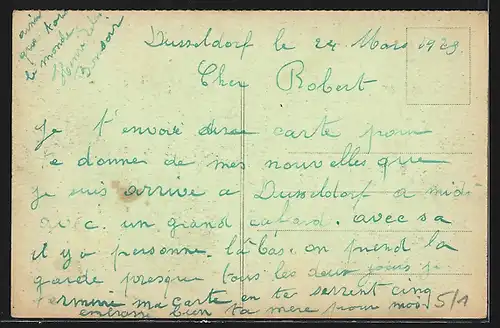 Dusseldorf le 24 Mars 1923
Cher Robert
Je t'envoie cette carte pour
te donner de mes nouvelles que
je suis arrive a Dusseldorf a midi
avec un grand cafard. avec sa
il y a personne. là bas. on prend la
garde presque tous les deux jours je
termine ma carte en te serrent cinq
embrasse bien ta mère pour moi
ainsi
que tout
le monde
Bonsoir
5/1